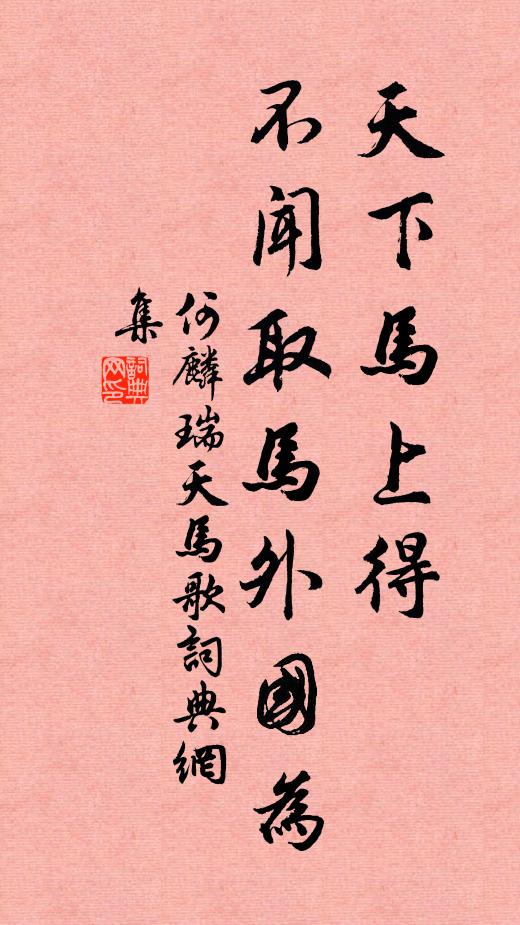 天下馬上得
不聞取馬外國為
何麟瑞天馬歌詞典網
集
詞典
网印